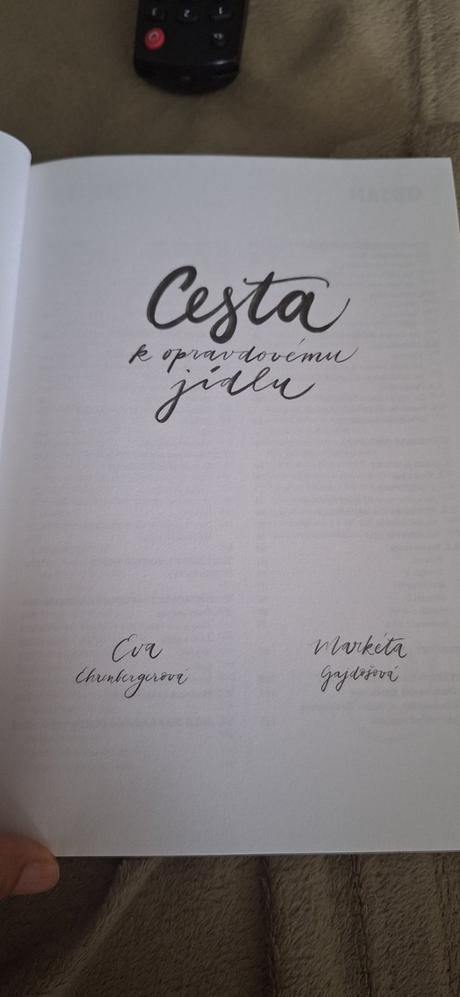 Cesta
k opravdovému
jídlu
Eva
Ehrenbergerová
Markéta
Gajdošová